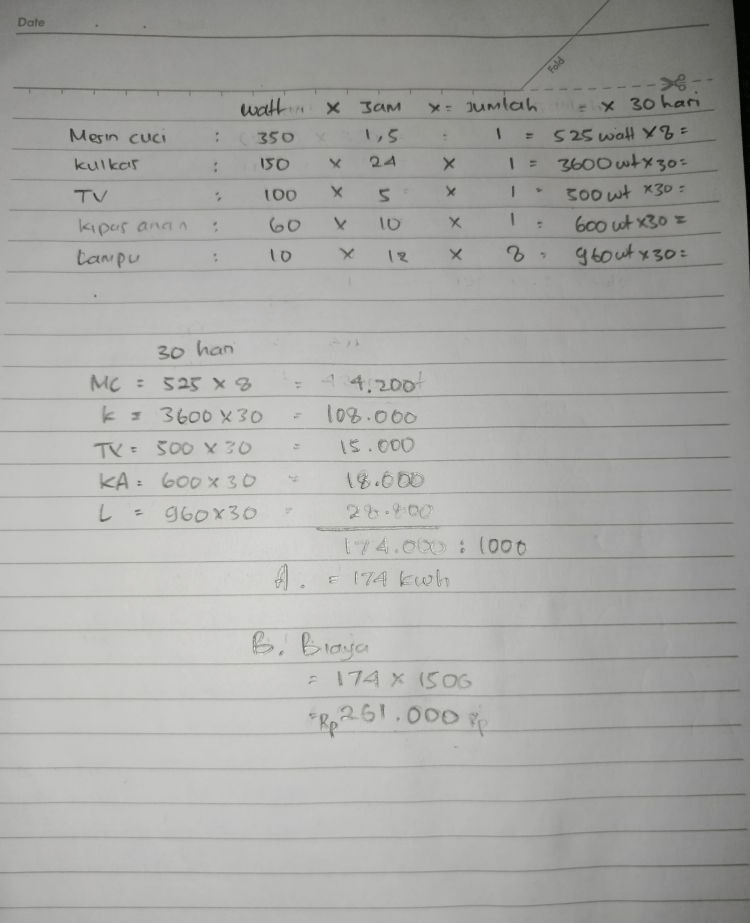 Date
Fold
watt x Jam x= Jumlah = x 30 hari
Mesin cuci : 350 x 1,5 : 1 = 525 watt x 8 =
kulkas : 150 x 24 x 1 = 3600 wt x 30 =
TV : 100 x 5 x 1 = 500 wt x30 =
kipas angin : 60 x 10 x 1 = 600 wt x30 =
Lampu : 10 x 12 x 8 = 960 wt x 30 =
30 hari
MC = 525 x 8 = 4.200
k = 3600 x 30 = 108.000
TV = 500 x 30 = 15.000
KA = 600 x 30 = 18.000
L = 960 x 30 = 28.800
174.000 : 1000
A. = 174 kwh
B. Biaya
= 174 x 1500
= Rp 261.000 Rp